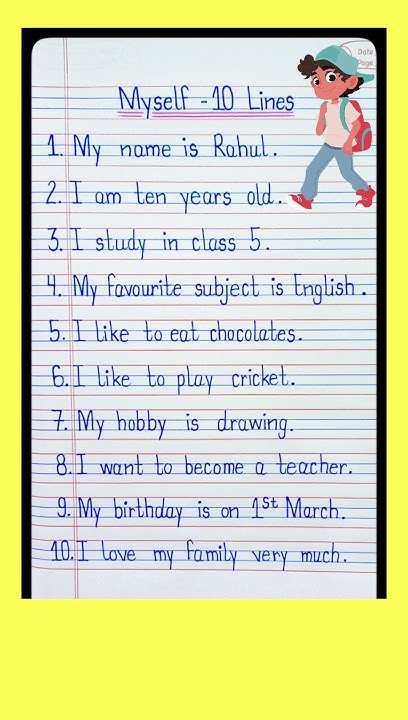 Date
Page
Myself - 10 Lines
1. My name is Rahul.
2. I am ten years old.
3. I study in class 5.
4. My favourite subject is English.
5. I like to eat chocolates.
6. I like to play cricket.
7. My hobby is drawing.
8. I want to become a teacher.
9. My birthday is on 1st March.
10. I love my family very much.